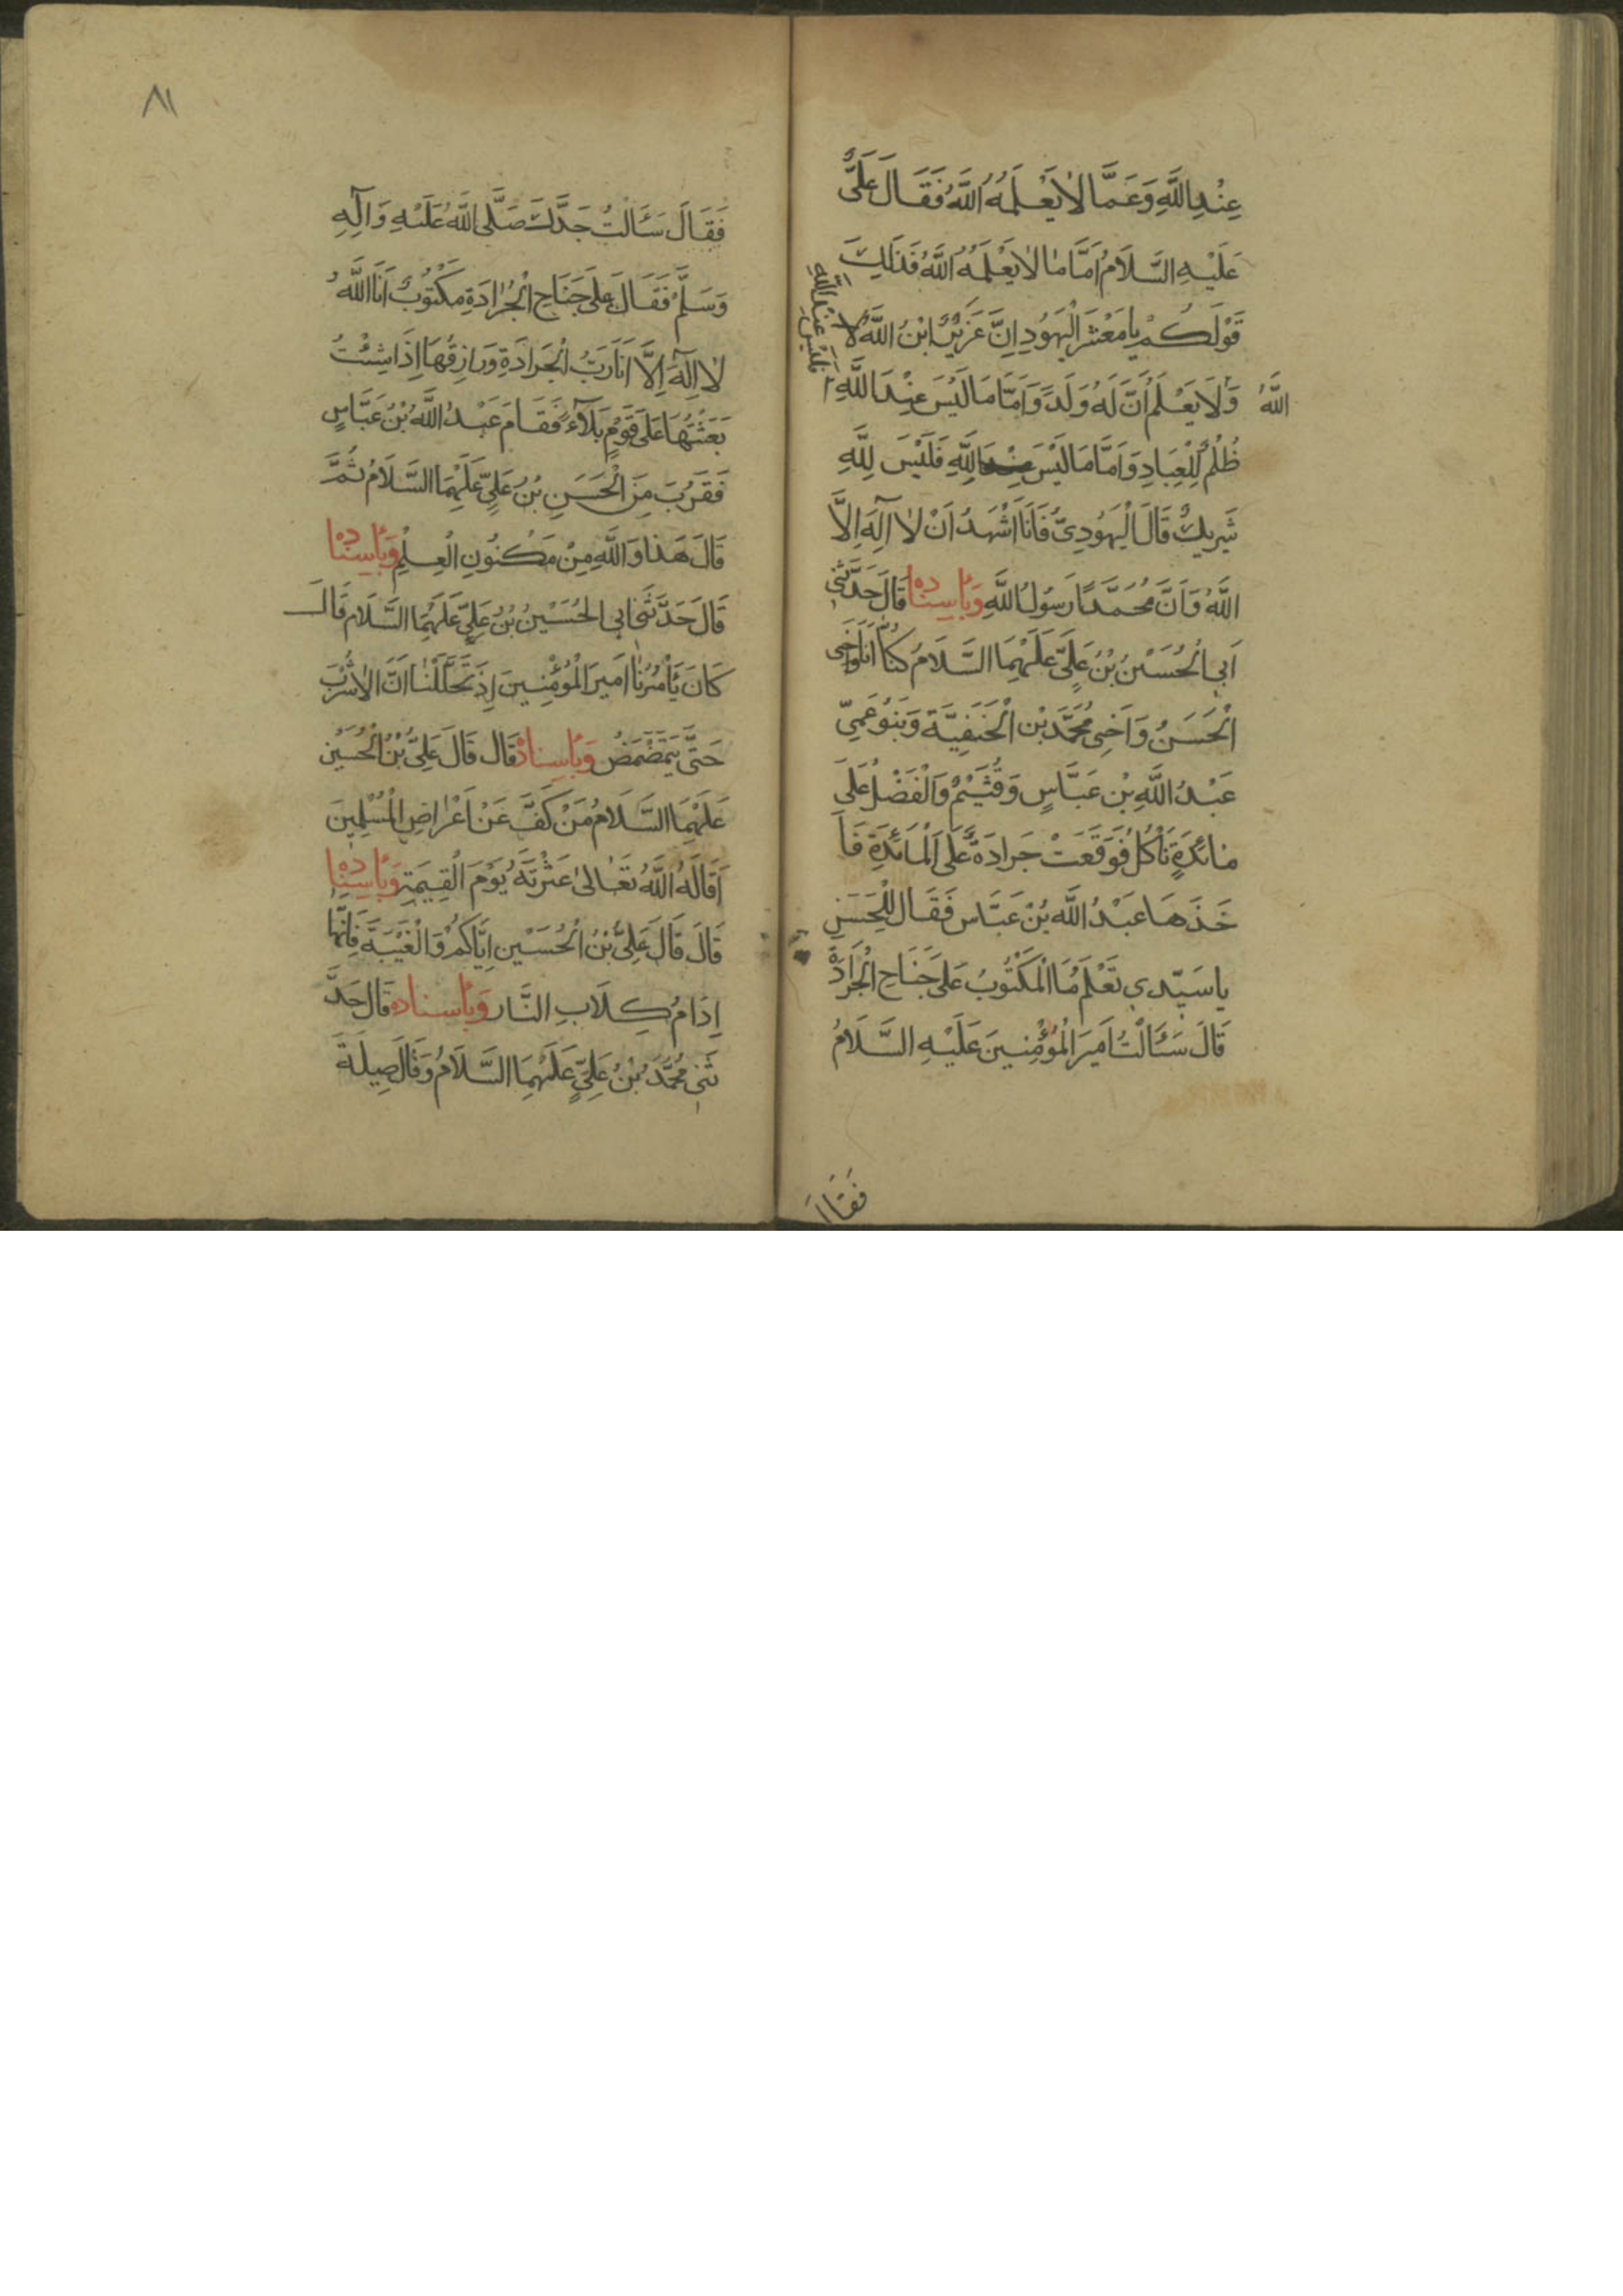 عِنْدِ اللَّهِ وَعَمَّا لَا يَعْلَمُهُ اللَّهُ فَقَالَ عَلِيٌّ
عَلَيْهِ السَّلَامُ اَمَّا مَا لَا يَعْلَمُهُ اللَّهُ فَذَلِكَ
قَوْلُكُمْ يَا مَعْشَرَ الْيَهُودِ اِنَّ عُزَيْرًا ابْنُ اللَّهِ لَا
اللَّهُ وَلَا يَعْلَمُ اَنَّ لَهُ وَلَدً وَاَمَّا مَا لَيْسَ عِنْدَ اللَّهِ
فَلَيْسَ عِنْدَ اللَّهِ
ظُلْمٌ لِلْعِبَادِ وَاَمَّا مَا لَيْسَ لِلَّهِ فَلَيْسَ لِلَّهِ
شَرِيكٌ قَالَ الْيَهُودِيُّ فَاَنَا اَشْهَدُ اَنْ لَا اِلَهَ اِلَّا
اللَّهُ وَاَنَّ مُحَمَّدًا رَسُولُ اللَّهِ وَبِاِسْنَادِهِ قَالَ حَدَّثَنِي
اَبِي الْحُسَيْنُ بْنُ عَلِيٍّ عَلَيْهِمَا السَّلَامُ كُنَّا اَنَا وَاَخِي
الْحَسَنُ وَاَخِي مُحَمَّدُ بْنُ الْحَنَفِيَّةِ وَبَنُو عَمِّي
عَبْدُ اللَّهِ بْنِ عَبَّاسٍ وَقُثَيْمٌ وَالْفَضْلُ عَلَى
مَائِدَةٍ نَأْكُلُ فَوَقَعَتْ جَرَادَةٌ عَلَى الْمَائِدَةِ فَاَ
خَذَهَا عَبْدُ اللَّهِ بْنُ عَبَّاسٍ فَقَالَ لِلْحَسَنِ
يَا سَيِّدِي تَعْلَمُ مَا الْمَكْتُوبُ عَلَى جَنَاحِ الْجَرَادَةِ
قَالَ سَئَالْتُ اَمِيرَ الْمُؤْمِنِينَ عَلَيْهِ السَّلَامُ
فَقَالَ
٨١
فَقَالَ سَئَالْتُ جَدَّكَ صَلَّى اللَّهُ عَلَيْهِ وَآلِهِ
وَسَلَّمَ فَقَالَ عَلَى جَنَاحِ الْجَرَادَةِ مَكْتُوبٌ اَنَا اللَّهُ
لَا اِلَهَ اِلَّا اَنَا رَبُّ الْجَرَادَةِ وَرَازِقُهَا اِذَا شِئْتُ
بَعَثْتُهَا عَلَى قَوْمٍ بَلَاءً فَقَامَ عَبْدُ اللَّهِ بْنُ عَبَّاسٍ
فَقَرُبَ مِنَ الْحَسَنِ بْنُ عَلِيٍّ عَلَيْهِمَا السَّلَامُ ثُمَّ
قَالَ هَذَا وَاللَّهِ مِنْ مَكْنُونِ الْعِلْمِ وَبِاِسْنَادِهِ
قَالَ حَدَّثَنِي اَبِي الْحُسَيْنُ بْنُ عَلِيٍّ عَلَيْهِمَا السَّلَامُ قَالَ
كَانَ يَأْمُرُنَا اَمِيرَ الْمُؤْمِنِينَ اِذَ تَخَلَّلْنَا اَنْ لَا نَشْرَبَ
حَتَّى يَتَمَضْمَضُ وَبِاِسْنَادِهِ قَالَ قَالَ عَلِيُّ بْنُ الْحُسَيْنِ
عَلَيْهِمَا السَّلَامُ مَنْ كَفَّ عَنْ اَعْرَاضِ الْمُسْلِمِينَ
اَقَالَهُ اللَّهُ تَعَالَى عَثْرَتَهُ يَوْمَ الْقِيمَةِ وَبِاِسْنَادِهِ
قَالَ قَالَ عَلِيُّ بْنُ الْحُسَيْنِ اِيَّاكُمْ وَالْغَيْبَةَ فَاِنَّهَا
اِدَامُ كِلَابِ النَّارِ وَبِاِسْنَادِهِ قَالَ حَدَّ
ثَنِي مُحَمَّدُ بْنُ عَلِيٍّ عَلَيْهِمَا السَّلَامُ وَقَالَ صِيلَةُ